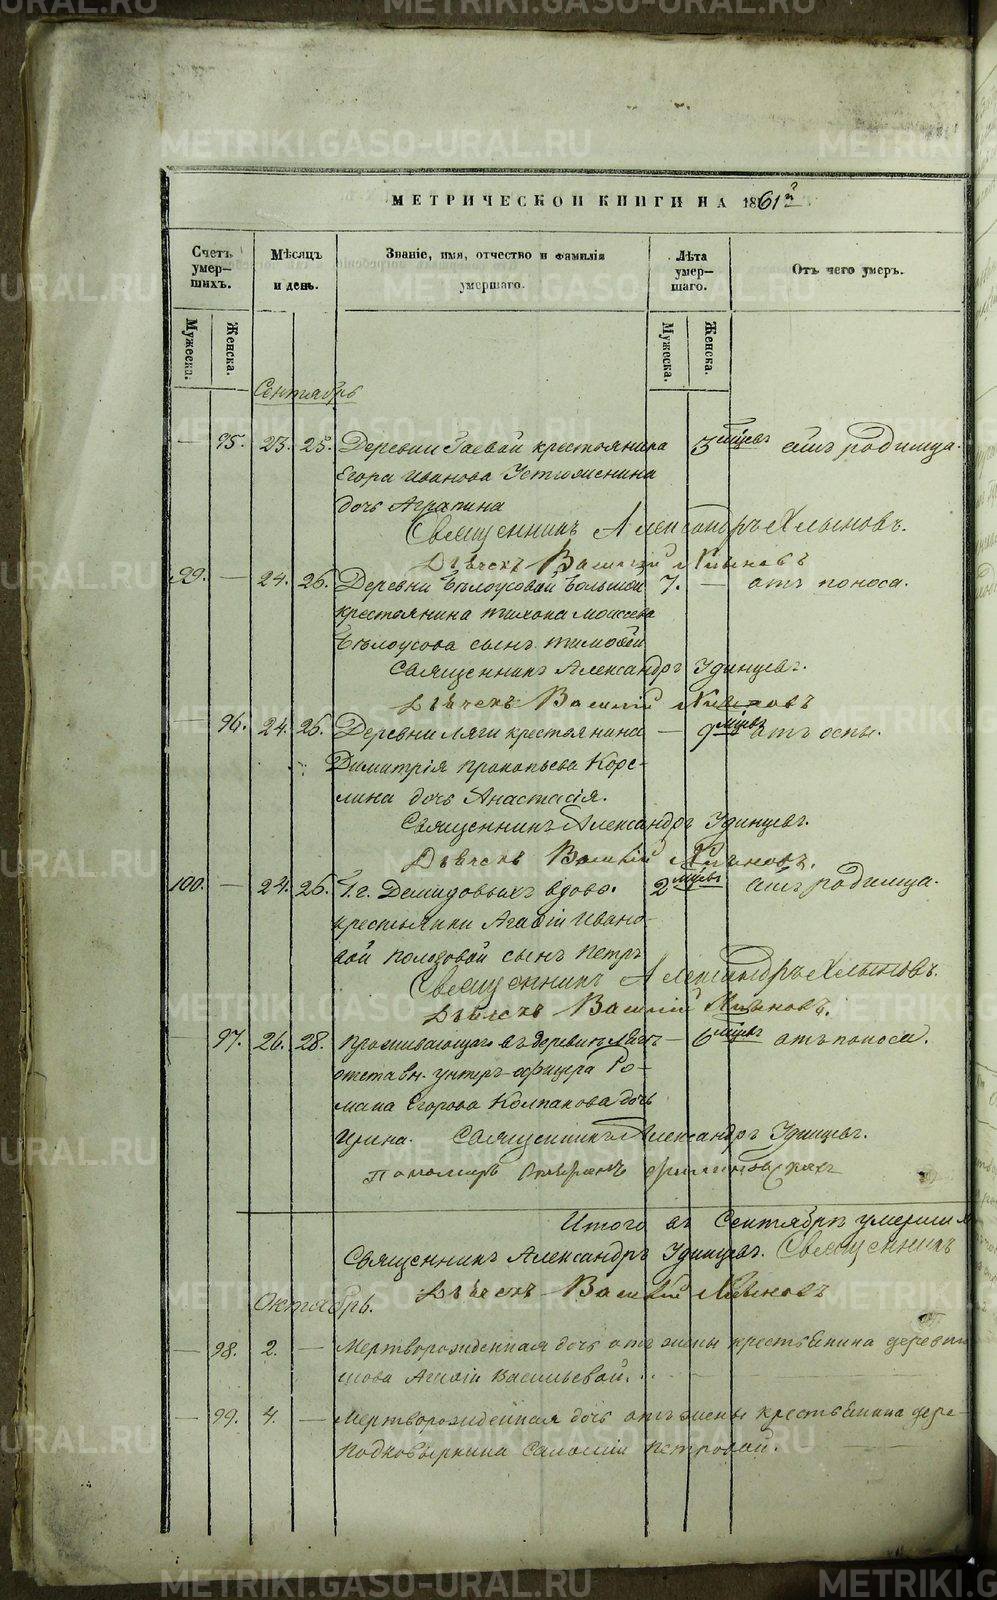 МЕТРИЧЕСКОЙ КНИГИ НА 1861й
Счетъ умер—шихъ.
Мѣсяцъ и день.
Званіе, имя, отчество и фамилія умершаго.
Лѣта умер—шаго.
Отъ чего умеръ.
Мужеска. Женска.
Мужеска. Женска.
Сентябрь
— 95. 23. 25. Деревни крестьянина 3 мѣсяц отъ родимца.
Егора Иванова Устюженина
дочь Агрипина
Священникъ Александръ Хлыновъ.
Дьячекъ Василій
99. — 24. 26. Деревни Бѣлоусовой Большой 7. — отъ поноса.
крестьянина Тихона Моисеева
Бѣлоусова сынъ Тимофей
Священникъ Александръ Удинцевъ.
Дьячекъ Василій
— 96. 24. 26. Деревни Ляги крестьянина — 9 мѣсяц отъ оспы.
Димитрія Прокопьева Коре-
лина дочь Анастасія.
Священникъ Александръ Удинцевъ.
Дьячекъ Василій
100. — 24. 26. Г.г. Демидовыхъ вдовы 2 мѣсяц отъ родимца.
крестьянки Агафіи Ивано-
вой Полозовой сынъ Петръ
Священникъ Александръ Хлыновъ.
Дьячекъ Василій
— 97. 26. 28. Проживающаго въ деревнѣ — 6 мѣсяц отъ поноса.
отставн. унтеръ-офицера Ро-
мана Егорова Колпакова дочь
Ирина. Священникъ Александръ Удинцевъ.
Пономарь
Итого въ Сентябрѣ умерши
Священникъ Александръ Удинцевъ. Священникъ
Дьячекъ Василій
Октябрь.
— 98. 2. — Мертворожденная дочь отъ жены крестьянина деревни
Васильевой.
— 99. 4. — Мертворожденная дочь отъ жены крестьянина дере-
Подковыркина Саломіи Петровой.
METRIKI.GASO-URAL.RU